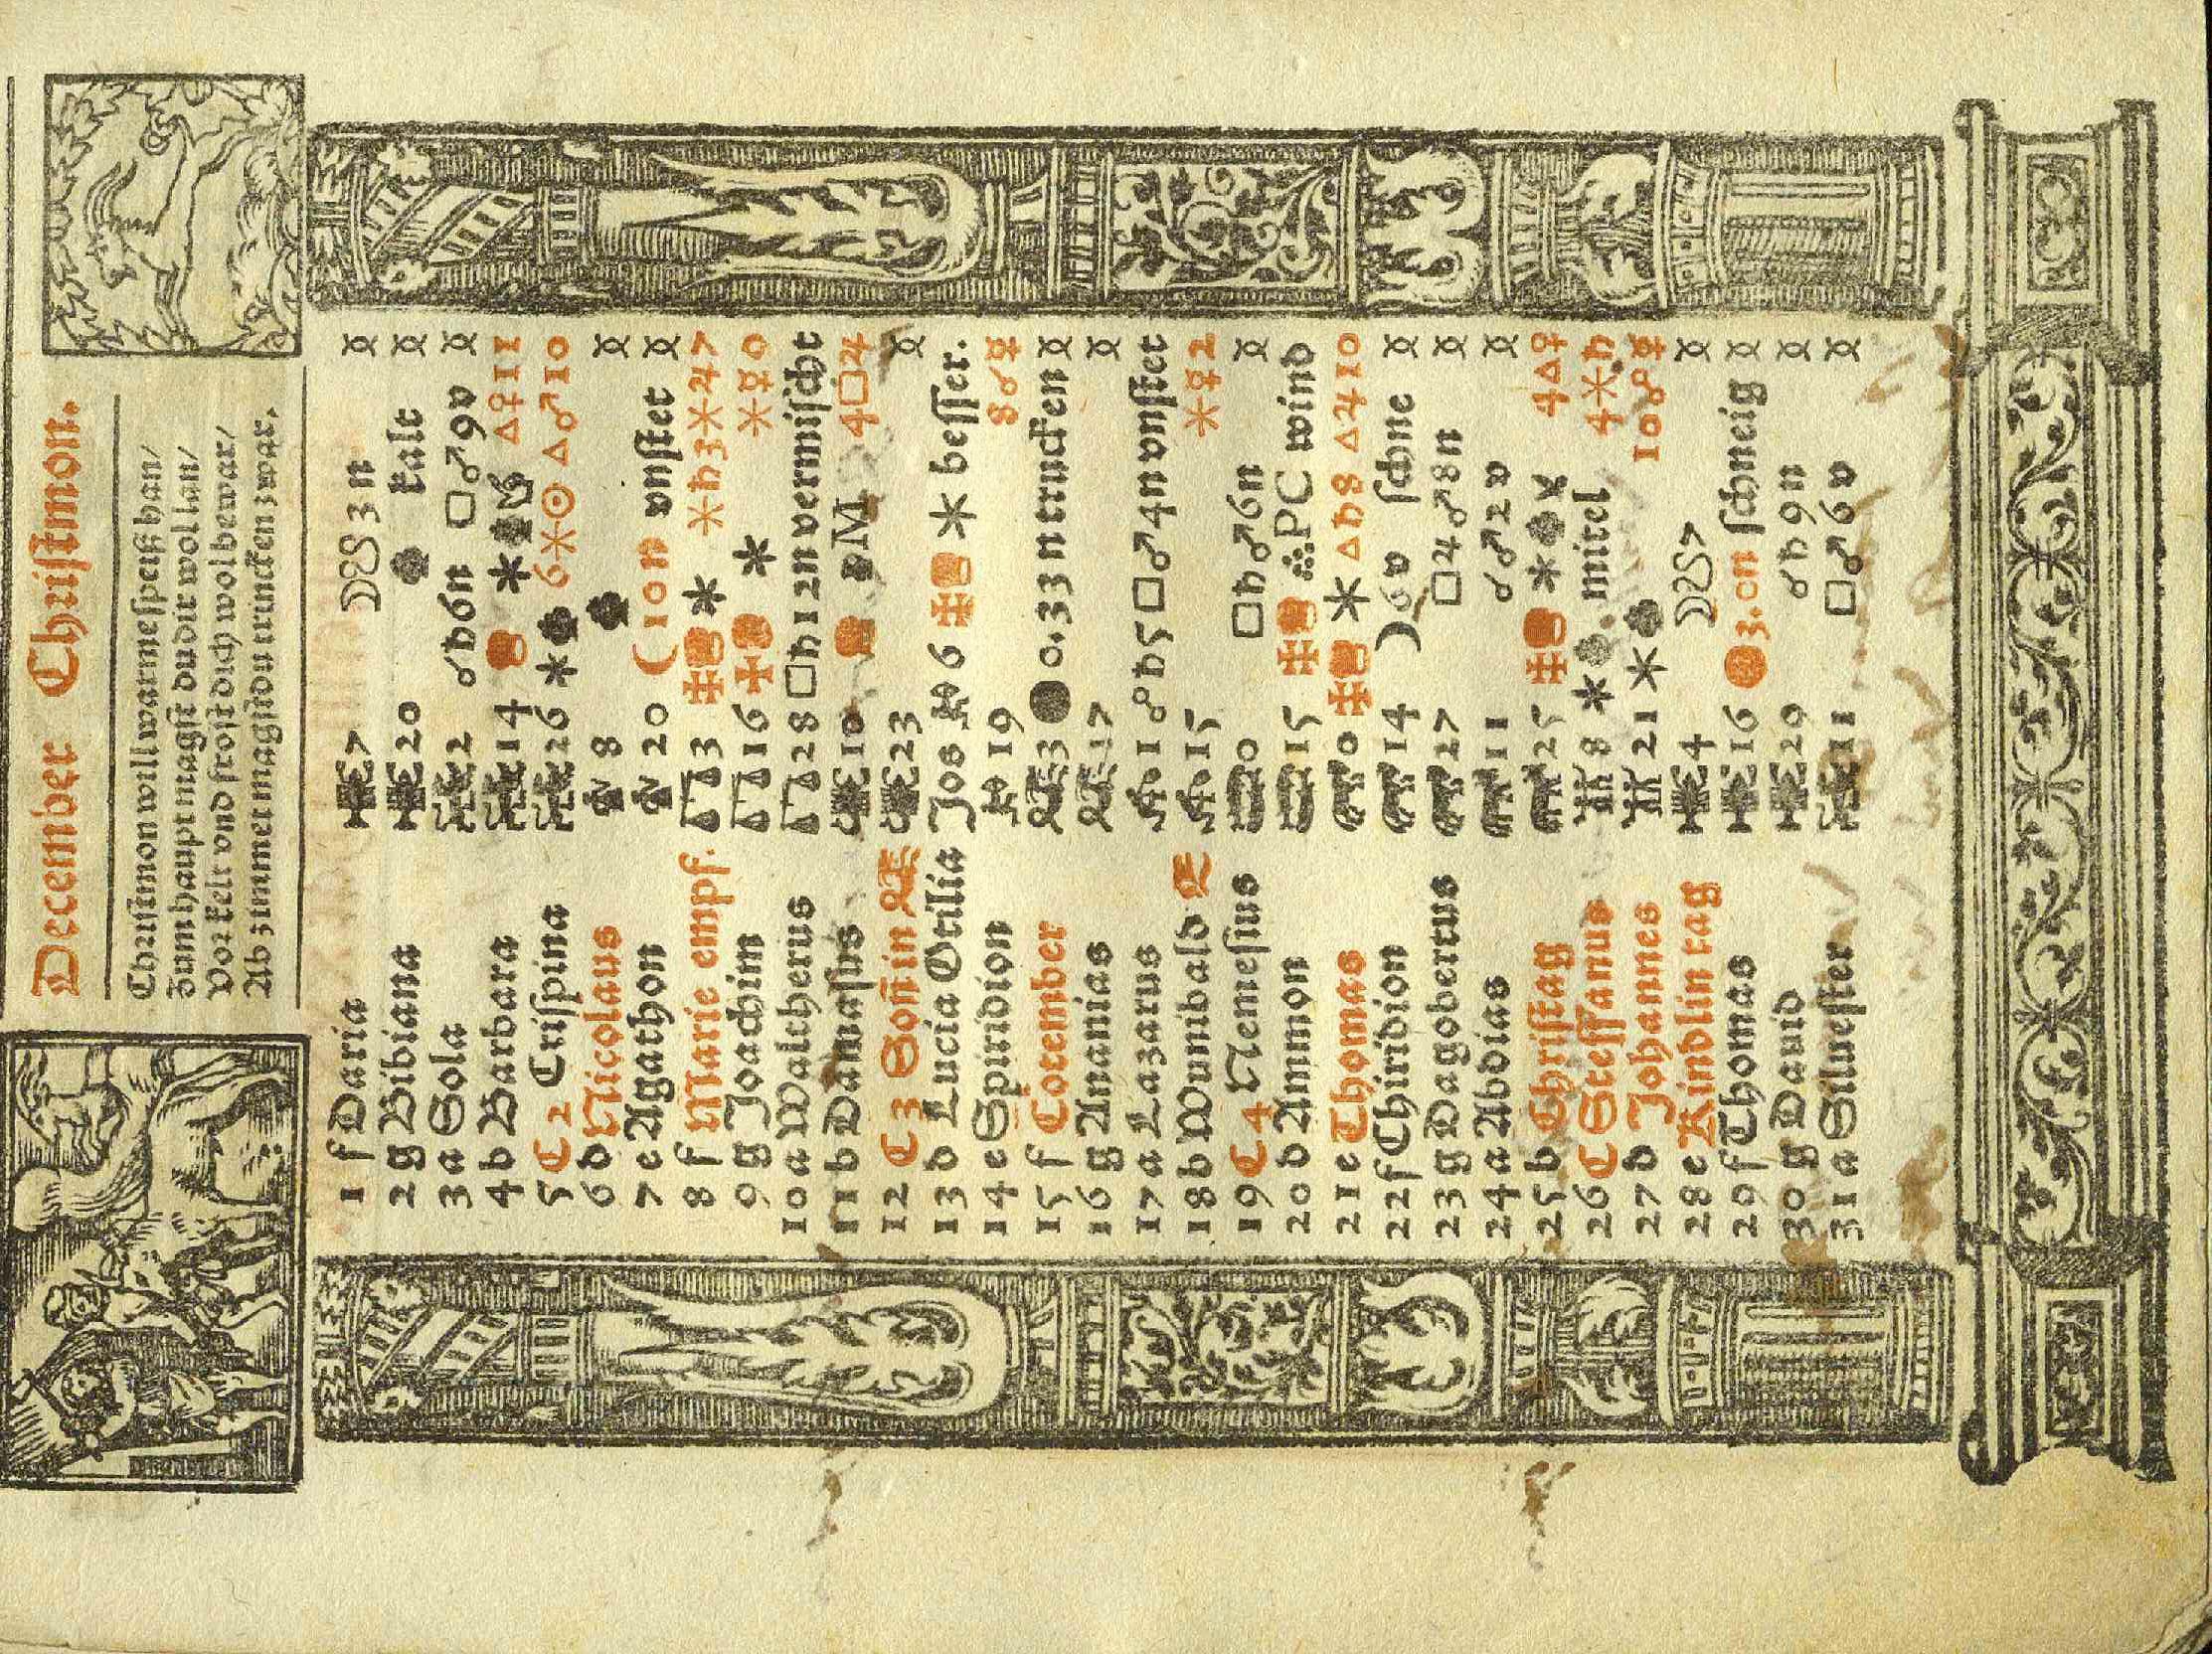 December Christmon.
Christmon will warme speiß han/
Zum haupt magst du dir wol lan/
Vor kelt vnd frost dich wol bewar/
Ab zimmet magstdu trincken zwar.
1 f Daria 7 ☽☋ 3 n ¤
2 g Bibiana 20 kalt ¤
3 a Sola 2 ☌♄6n □♂9v ¤
4 b Barbara 14 △♀11
5 C 2 Crispina 26 6⚹☉ △♂10
6 d Nicolaus 8 ¤
7 e Agathon 20 ☾ 10n vnstet ¤
8 f Marie empf. 3 ⚹♄3⚹♃7
9 g Joachim 16 ⚹☿0
10 a Waltherus 28 □♄12n vermischt
11 b Damasus 10 M 4□♃
12 C 3 Soñ in ♑ 23 ¤
13 d Lucia Otilia Jos 6 ⚹ besser.
14 e Spiridion 19 8☌☿
15 f Cotember 3 ● 0.33 n trucken ¤
16 g Ananias 17 ¤
17 a Lazarus 1 ☍♄5□♂4n vnstet
18 b Wunibald 15 ⚹☿2
19 C 4 Nemesius 0 □♄♂6n ¤
20 d Ammon 15 PC wind
21 e Thomas 0 △♄8 △♃10
22 f Chiridion 14 ☽6v schne ¤
23 g Dagobertus 27 □♃♂8n ¤
24 a Abdias 11 ☌♂2v ¤
25 b Christag 25 4△♀
26 C Steffanus 8 mitel 4⚹♄
27 d Johannes 21 10☍☿
28 e Kindlin tag 4 ☽☋7 ¤
29 f Thomas 16 3.0n schneig ¤
30 g Dauid 29 ☌♄9n ¤
31 a Siluester 11 □♂6v ¤